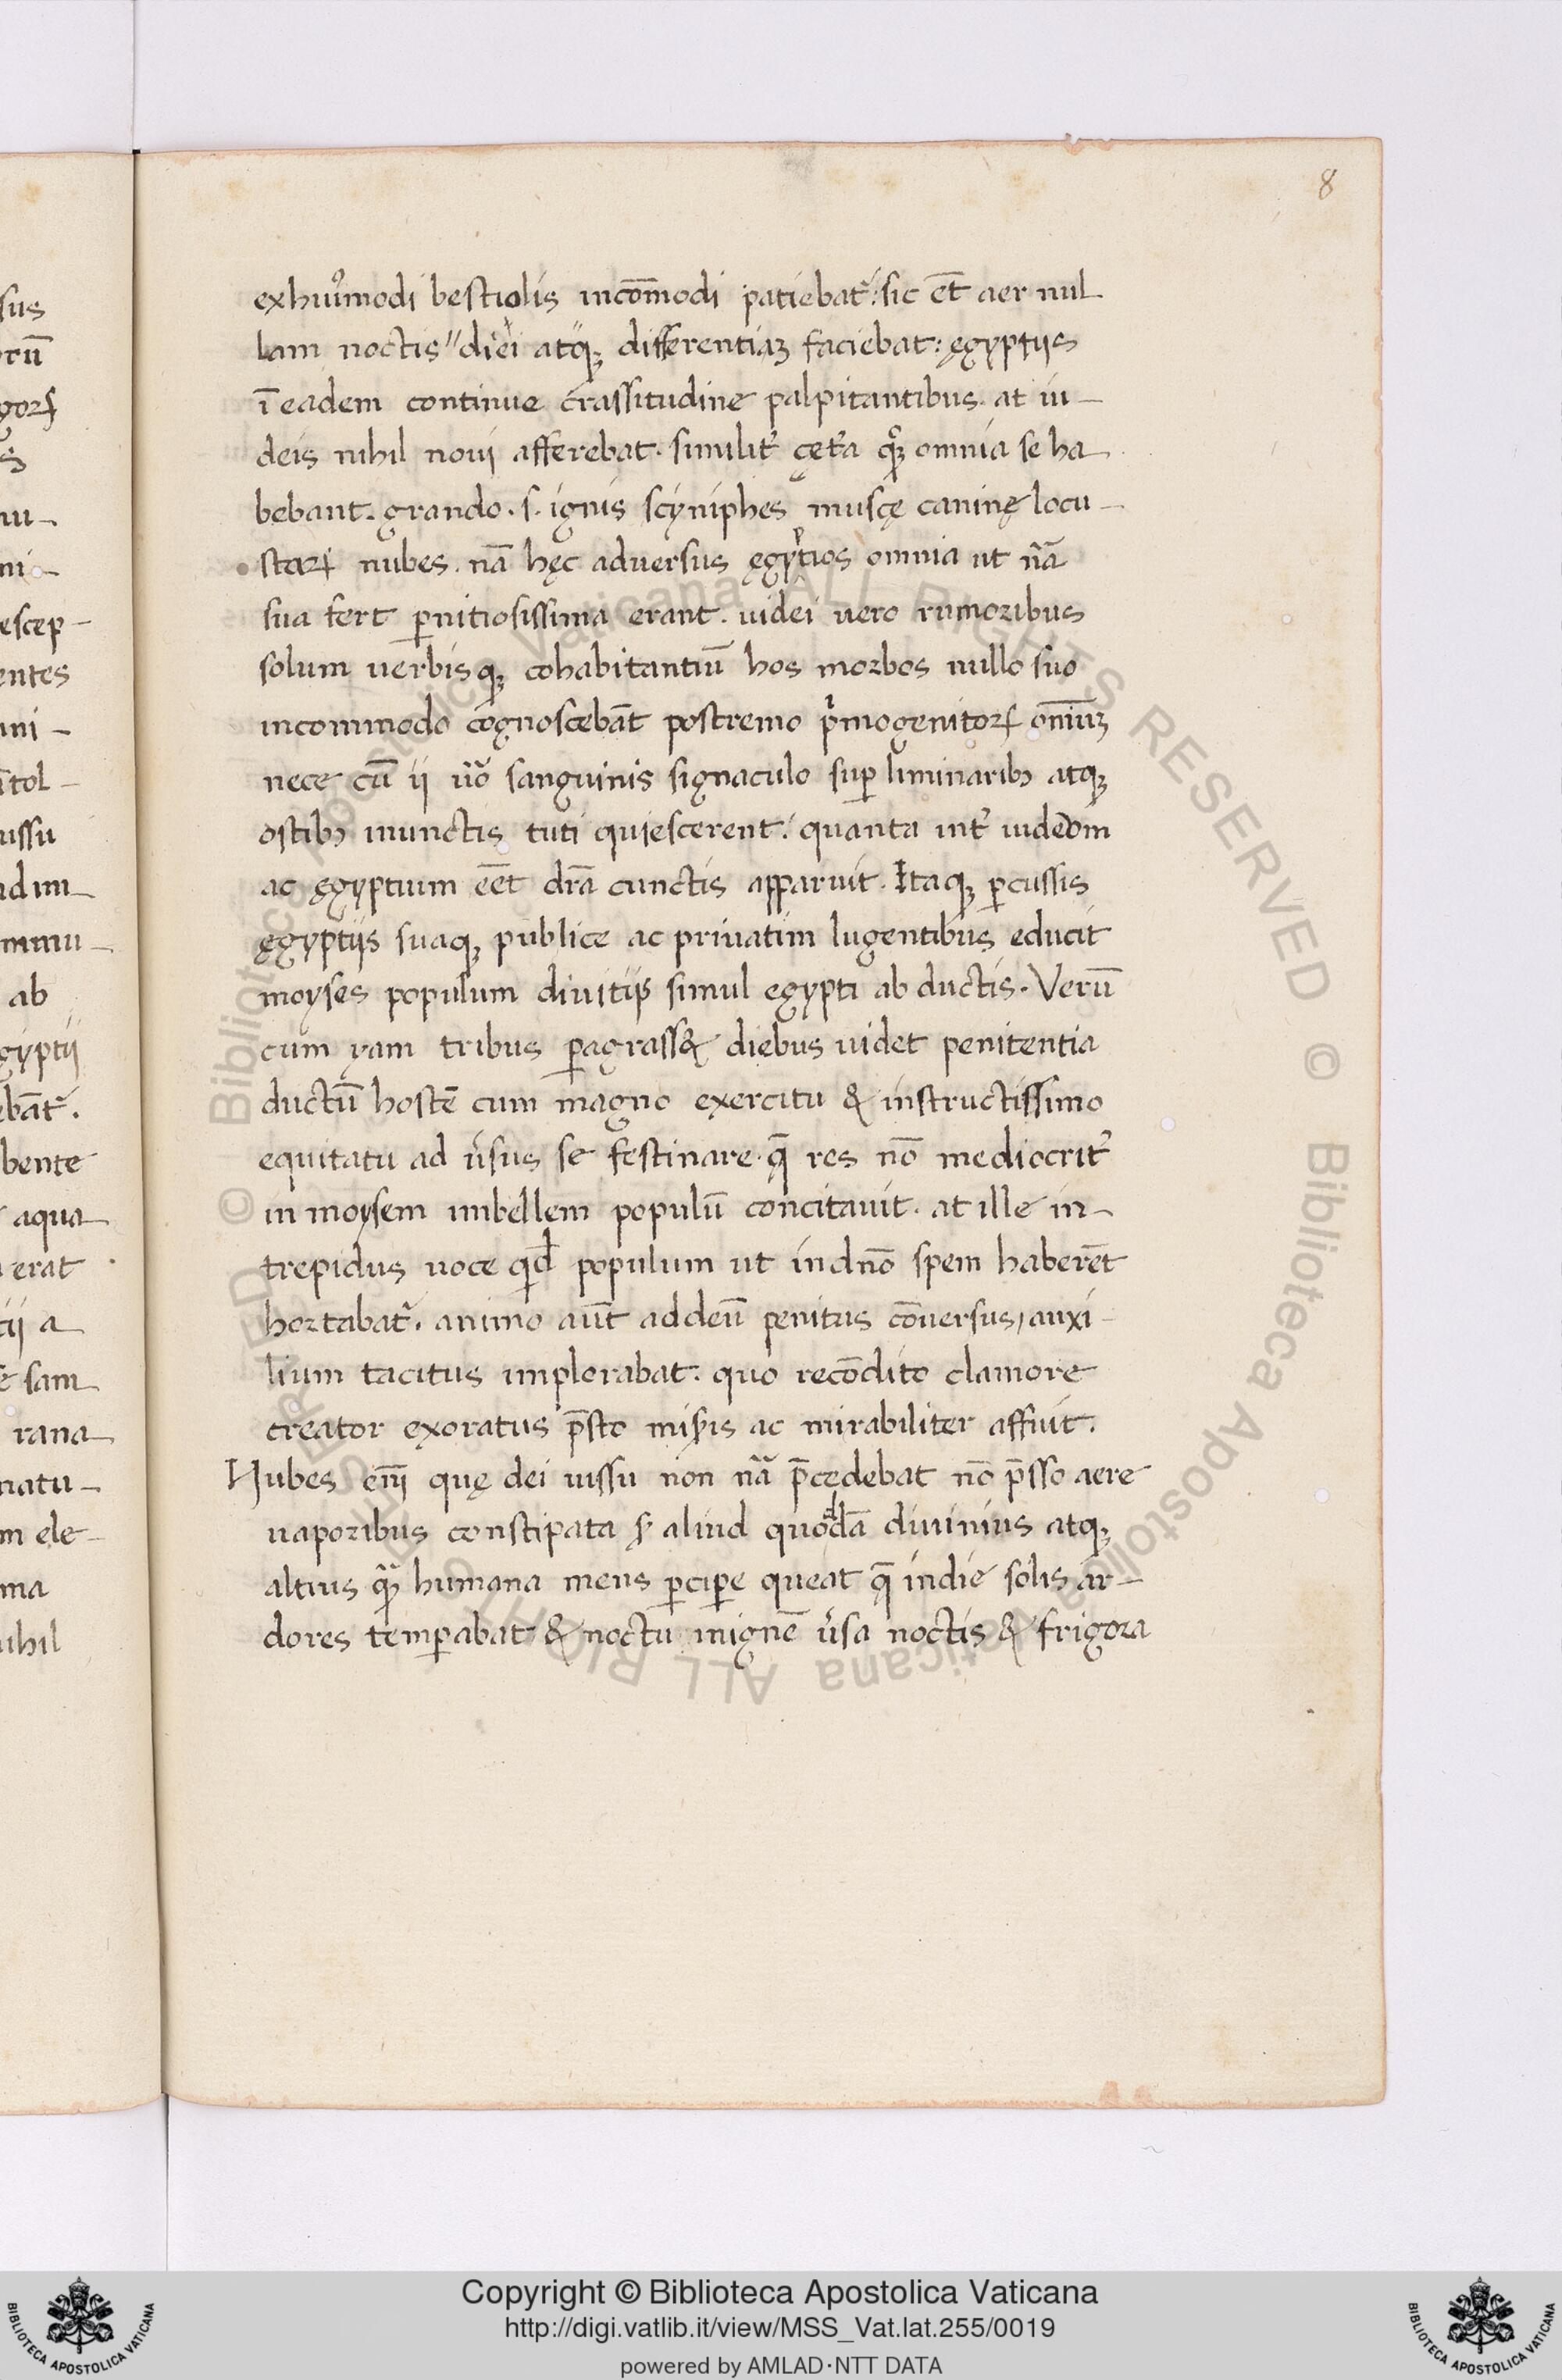 8
exhuiꝰmodi bestiolis incōmodi patiebat᷑: sic et̄ aer nul
lam noctis〃diei atq́ꝫ differentiaꝫ faciebat: ęgyptijs
ī eadem continue crassitudine palpitantibus. at iu-
deis nihil noui afferebat. similit᷑ cęt᷑a omnia se ha
bebant. grando. s. ignis scyniphes muscę caninę locu-
staꝝ nubes. nā hęc aduersus ęgyptios omnia ut nā
sua fert ꝑnitiosissima erant. iudei uero rumoribus
solum uerbisqꝫ cohabitantiū hos morbos nullo suo
incommodo cognoscebāt postremo pⁱmogenitoꝝ om̄iuꝫ
nece cū ij uͦo sanguinis signaculo suꝑ liminaribꝫ atqꝫ
ostibꝫ inunctis tuti quiescerent. quanta int᷑ iudeom
ac ęgyptium eēt dr̄a cunctis apparuit. Itaqꝫ ꝑcussis
ęgyptijs suaqꝫ publice ac priuatim lugentibus educit
moyses populum diuitijs simul egypti ab ductis. Verū
cum yam tribus ꝑagrass& diebus uidet penitentia
ductū hostē cum magno exercitu & instructissimo
equitatu ad u᷑sus se festinare. q̄ res nō mediocrit᷑
in moysem imbellem populū concitauit. at ille in-
trepidus uoce qid̄ populum ut in dn̄o spem haberēt
hortabat᷑. animo aūt ad deū penitus cōuersus, auxi-
lium tacitus implorabat. quo recōdito clamore
creator exoratus p̄sto misꝵis ac mirabiliter affuit.
Nubes eni̅ quę dei iussu non nā p̄cędebat nō p̄sso aere
uaporibus constipata sꝫ aliud quoddā diuinius atqꝫ
altius qᷓꝫ humana mens ꝑciꝑe queat q̄ in die solis ar-
dores temꝑabat & noctu in ignē u᷑sa noctis & frigora
Copyright © Biblioteca Apostolica Vaticana
http://digi.vatlib.it/view/MSS_Vat.lat.255/0019
powered by AMLAD·NTT DATA